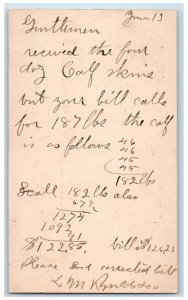 Jan 13
Gentlemen
recived the four
doz Calf skins
but your bill calls
for 187 lbs the calf
is as follows 46
46
45
45
182 lbs
182 lbs also
67½
1274
1092
91
$122.85 bill $126.23
Please send corrected bill